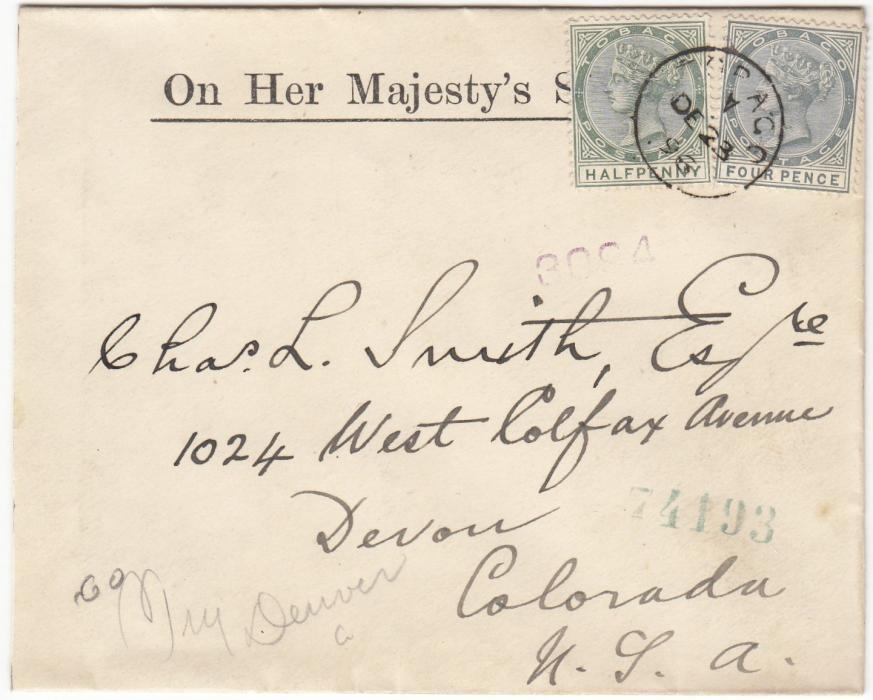 On Her Majesty's S
TOBAGO
POSTAGE
HALFPENNY
TOBAGO
POSTAGE
FOUR PENCE
TOBAGO
A
DE 23
Chas. L. Smith, Esqre
1024 West Colfax Avenue
Devon
74193
Colorada
U. S. A.
Denver